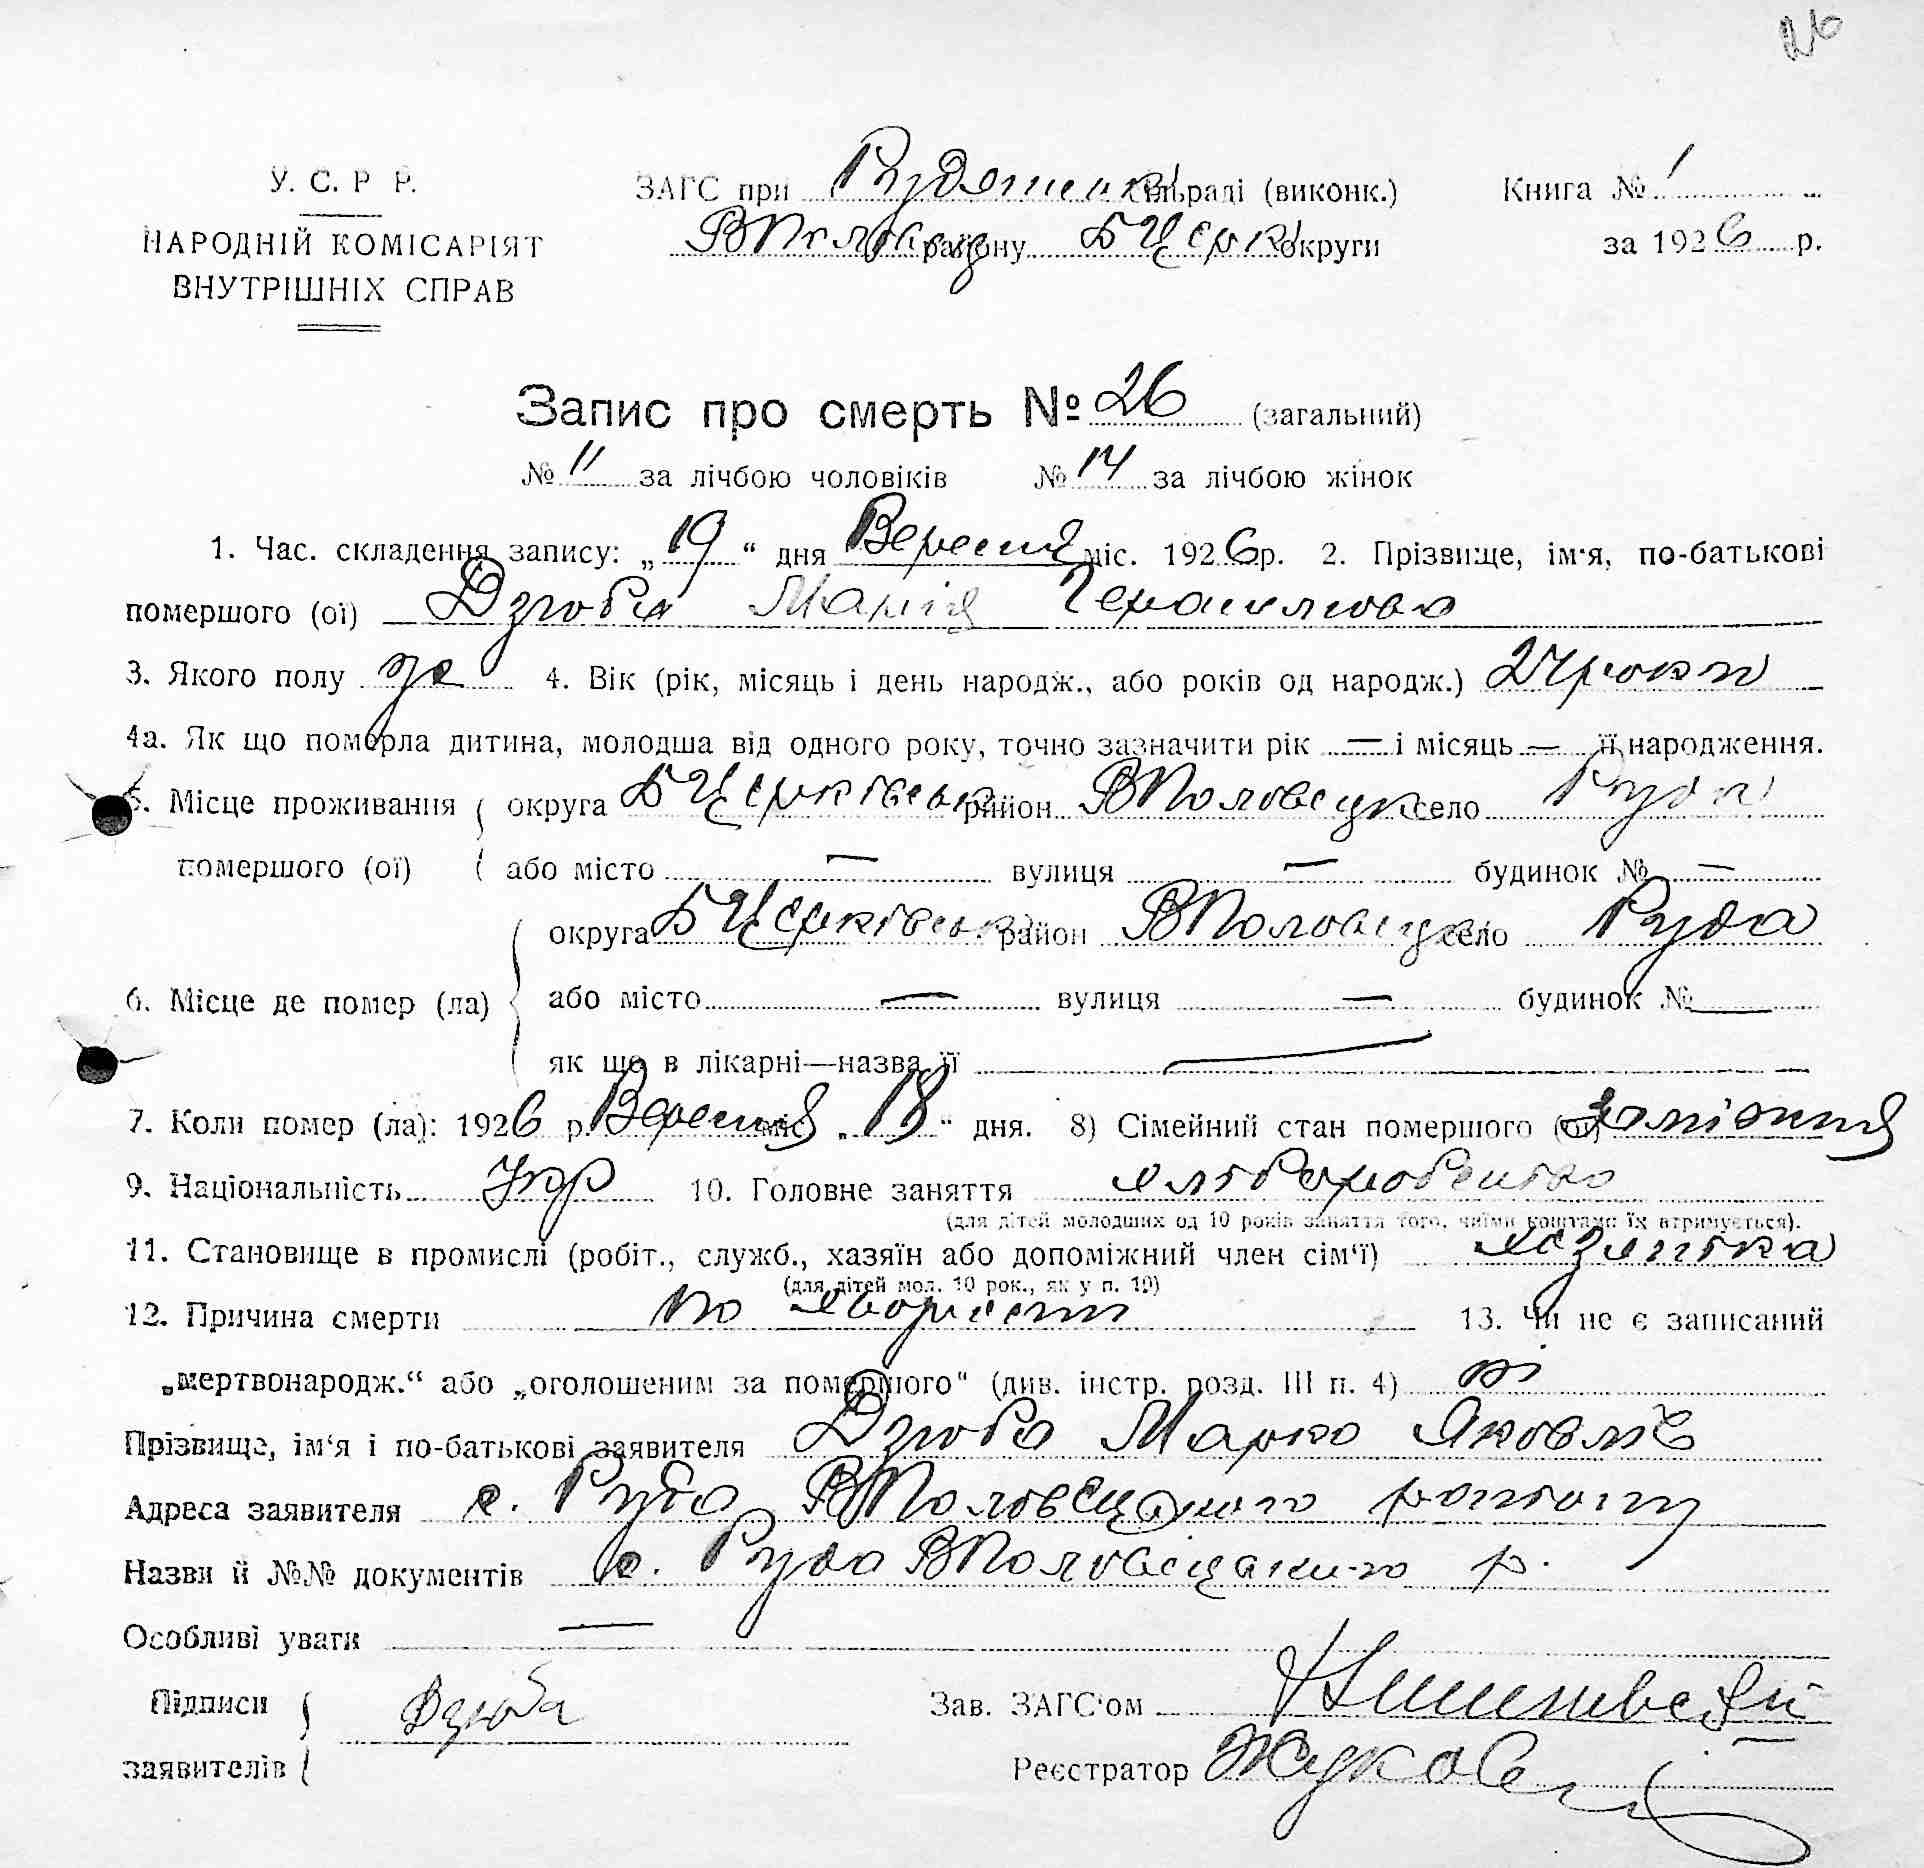 26
У. С. Р. Р.
НАРОДНІЙ КОМІСАРІЯТ
ВНУТРІШНІХ СПРАВ
ЗАГС при Рудянській сільраді (виконк.) Книга № 1
ВПоловец району БЦерків округи за 1926 р.
Запис про смерть № 26 (загальний)
№ 11 за лічбою чоловіків № 14 за лічбою жінок
1. Час. складення запису: „19“ дня Вересня міс. 1926 р. 2. Прізвище, ім'я, по-батькові
помершого (ої) Дзюба Марія Герасимова
3. Якого полу ж 4. Вік (рік, місяць і день народж., або років од народж.) 24 роки
4а. Як що померла дитина, молодша від одного року, точно зазначити рік — і місяць — її народження.
5. Місце проживання округа БЦерківськ район ВПоловецк село Руда
помершого (ої) або місто — вулиця — будинок № —
округа БЦерківськ район ВПоловецк село Руда
6. Місце де помер (ла) або місто — вулиця — будинок № —
як що в лікарні—назва її —
7. Коли помер (ла): 1926 р. Вересня міс. „18“ дня. 8) Сімейний стан помершого (ої) Заміжня
9. Національність Укр 10. Головне заняття хліборобство
(для дітей молодших од 10 років заняття того, чиїми коштами їх втримується).
11. Становище в промислі (робіт., служб., хазяїн або допоміжний член сім'ї) хазяйка
(для дітей мол. 10 рок., як у п. 10)
12. Причина смерти по хворости 13. Чи не є записаний
„мертвонародж.“ або „оголошеним за померлого“ (див. інстр. розд. III п. 4) ні
Прізвище, ім'я і по-батькові заявителя Дзюба Марко Яковлів
Адреса заявителя с. Руда ВПоловецького району
Назви й №№ документів с. Руда ВПоловецького р.
Особливі уваги —
Підписи Дзюба Зав. ЗАГС'ом
заявителів Реєстратор